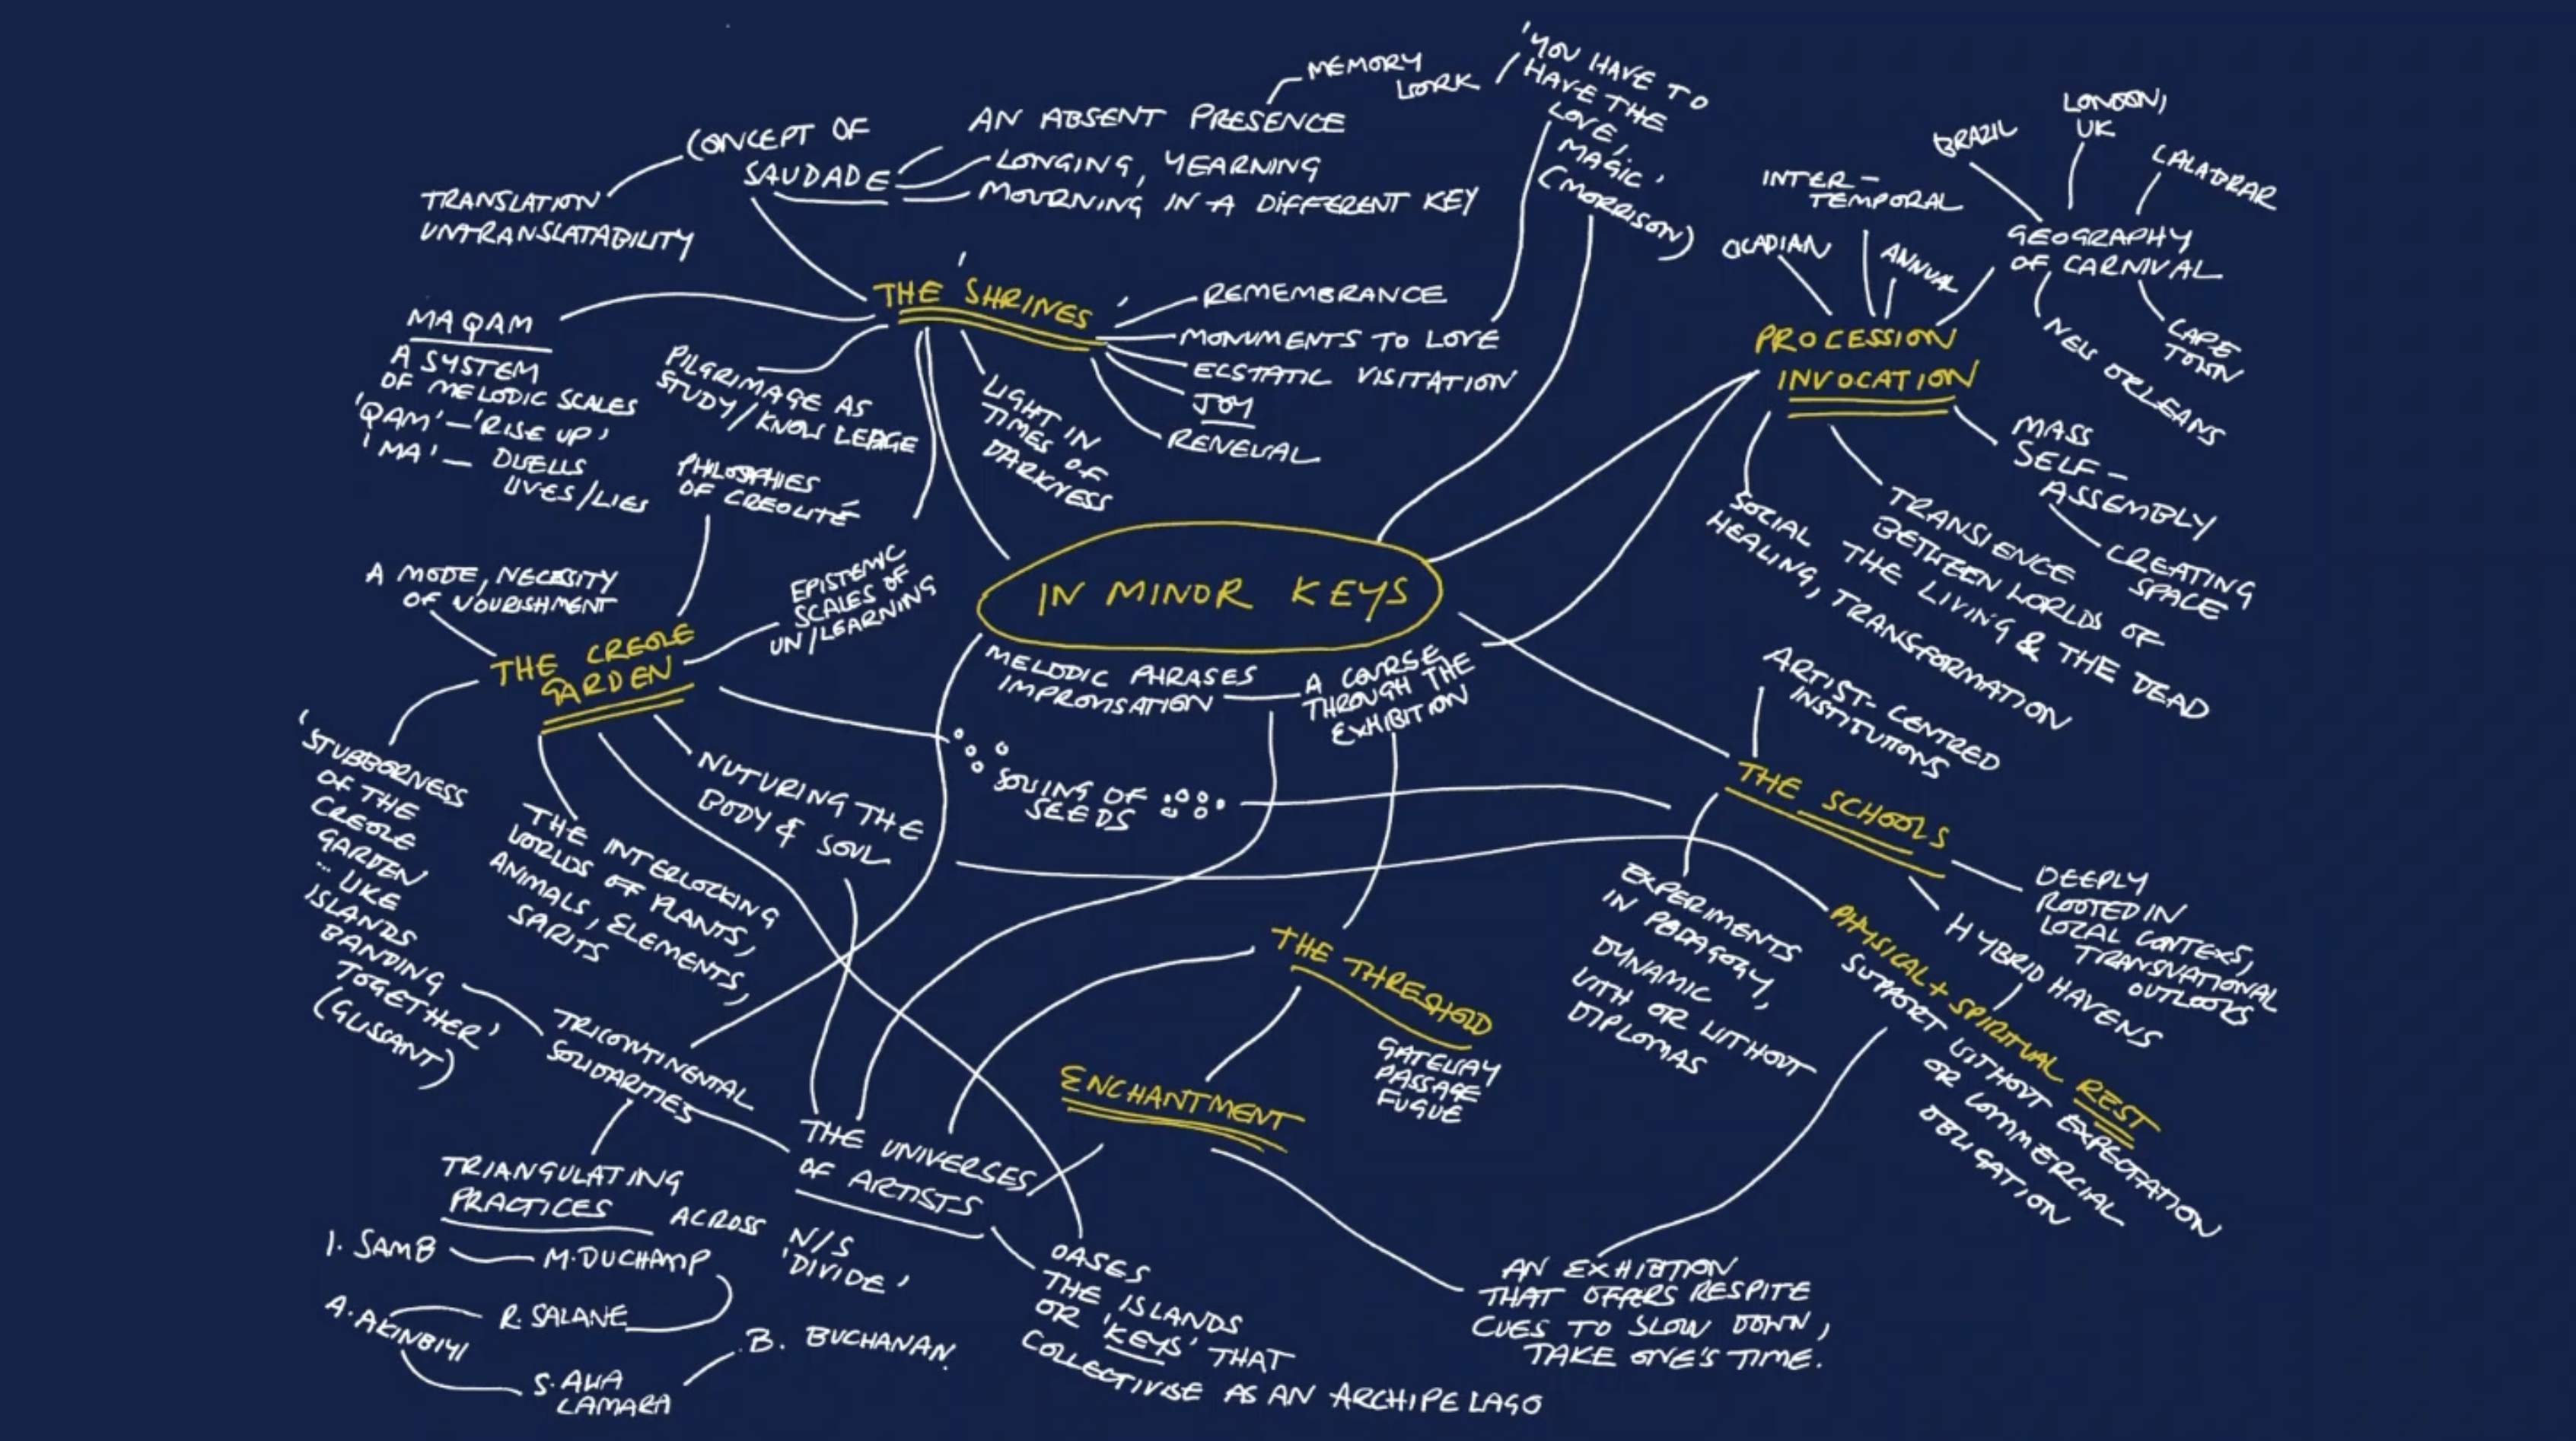 MEMORY
WORK
'YOU HAVE TO
HAVE THE
LOVE,
MAGIC'
(MORRISON)
CONCEPT OF
SAUDADE
AN ABSENT PRESENCE
LONGING, YEARNING
MOURNING IN A DIFFERENT KEY
TRANSLATION
UNTRANSLATABILITY
THE 'SHRINES'
REMEMBRANCE
MONUMENTS TO LOVE
ECSTATIC VISITATION
JOY
RENEWAL
LIGHT IN
TIMES OF
DARKNESS
PILGRIMAGE AS
STUDY/KNOWLEDGE
MAQAM
A SYSTEM
OF MELODIC SCALES
'QAM' — 'RISE UP'
'MA' — DWELLS
LIVES/LIES
BRAZIL
LONDON,
UK
LALABRAR
INTER-
TEMPORAL
OCADIAN
ANNUAL
GEOGRAPHY
OF CARNIVAL
NEW ORLEANS
CAPE
TOWN
PROCESSION
INVOCATION
MASS
SELF-
ASSEMBLY
CREATING
SPACE
TRANSIENCE
BETWEEN WORLDS OF
THE LIVING & THE DEAD
SOCIAL
HEALING, TRANSFORMATION
PHILOSPHIES
OF CREOLITÉ
A MODE, NECESSITY
OF NOURISHMENT
EPISTEMIC
SCALES OF
UN/LEARNING
THE CREOLE
GARDEN
IN MINOR KEYS
MELODIC PHRASES
IMPROVISATION
A COURSE
THROUGH THE
EXHIBITION
'STUBBORNESS
OF THE
CREOLE
GARDEN
... LIKE
ISLANDS
BANDING
TOGETHER'
(GLISSANT)
THE INTERLOCKING
WORLDS OF PLANTS,
ANIMALS, ELEMENTS,
SPIRITS
NUTURING THE
BODY & SOUL
SOWING OF
SEEDS
ARTIST-CENTRED
INSTITUTIONS
THE SCHOOLS
EXPERIMENTS
IN PEDAGOGY,
DYNAMIC
WITH OR WITHOUT
DIPLOMAS
DEEPLY
ROOTED IN
LOCAL CONTEXS,
TRANSNATIONAL
OUTLOOKS
HYBRID HAVENS
PHYSICAL + SPIRITUAL REST
SUPPORT WITHOUT EXPECTATION
OR COMMERCIAL
OBLIGATION
THE THRESHOLD
GATEWAY
PASSAGE
FUGUE
ENCHANTMENT
TRICONTINENTAL
SOLIDARITIES
THE UNIVERSES
OF ARTISTS
TRIANGULATING
PRACTICES ACROSS N/S
'DIVIDE'
I. SAMB
M. DUCHAMP
A. AKINBIYI
R. SALANE
S. AWA
CAMARA
B. BUCHANAN.
OASES
THE ISLANDS
OR 'KEYS' THAT
COLLECTIVISE AS AN ARCHIPELAGO
AN EXHIBTION
THAT OFFERS RESPITE
CUES TO SLOW DOWN,
TAKE ONE'S TIME.